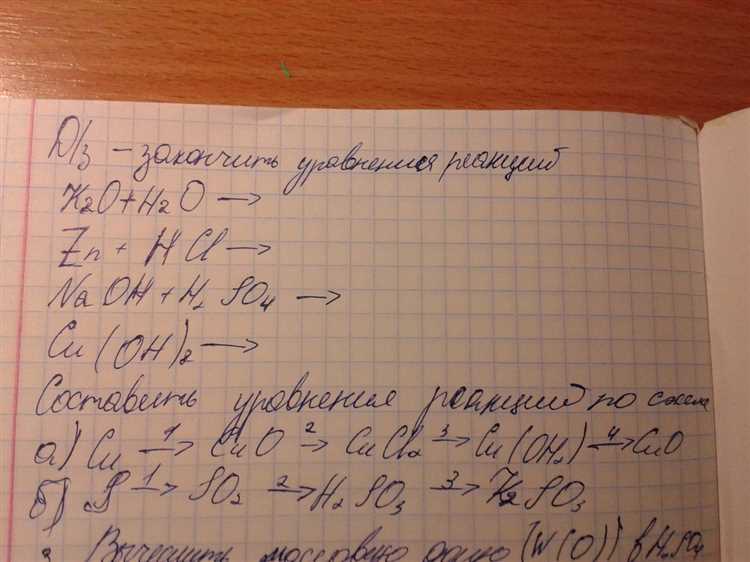 D/з – закончить уравнения реакций
K2O + H2O →
Zn + HCl →
NaOH + H2SO4 →
Cu(OH)2 →
Составить уравнения реакций по схеме
а) Cu 1→ CuO 2→ CuCl2 3→ Cu(OH2) 4→ CuO
б) S 1→ SO2 2→ H2SO3 3→ K2SO3
3. Вычислить массовую долю (W(O)) в H2SO4